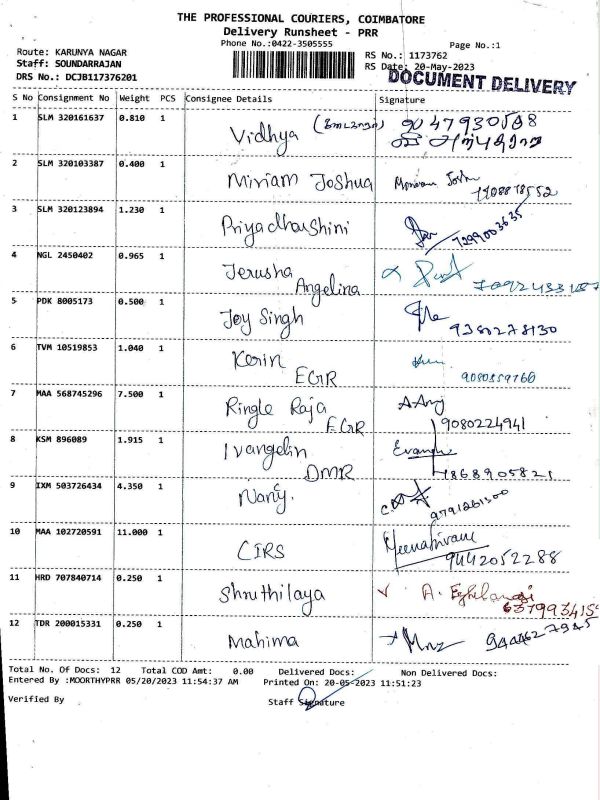 THE PROFESSIONAL COURIERS, COIMBATORE
Delivery Runsheet - PRR
Phone No.:0422-3505555
Page No.:1
Route: KARUNYA NAGAR
Staff: SOUNDARRAJAN
DRS No.: DCJB117376201
RS No.: 1173762
RS Date: 20-May-2023
DOCUMENT DELIVERY
S No Consignment No Weight PCS Consignee Details Signature
1 SLM 320161637 0.810 1 Vidhya
2 SLM 320103387 0.400 1 Miriam Joshua
3 SLM 320123894 1.230 1 Priyadharshini 7299003635
4 NGL 2450402 0.965 1 Jerusha Angelina
5 PDK 8005173 0.500 1 Joy Singh 9380278130
6 TVM 10519853 1.040 1 Kerin EGR 9080559760
7 MAA 568745296 7.500 1 Ringle Raja EGR 9080224941
8 KSM 896089 1.915 1 Ivangelin DMR 7868905821
9 IXM 503726434 4.350 1 Nancy. 9791261500
10 MAA 102720591 11.000 1 CIRS 9442052288
11 HRD 707840714 0.250 1 Shruthilaya
12 TDR 200015331 0.250 1 Mahima
Total No. Of Docs: 12 Total COD Amt: 0.00 Delivered Docs: Non Delivered Docs:
Entered By :MOORTHYPRR 05/20/2023 11:54:37 AM Printed On: 20-05-2023 11:51:23
Verified By Staff Signature